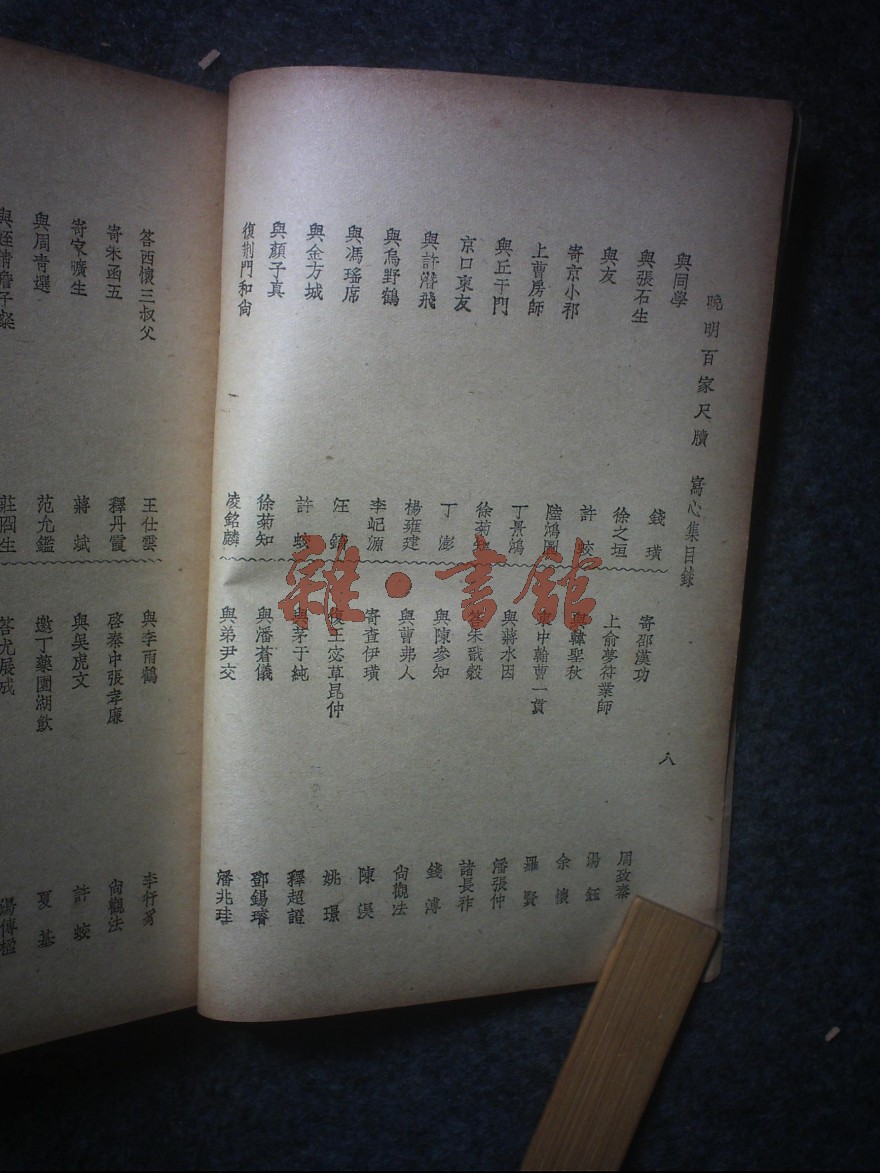 曉明百家尺牘 寫心集目錄
八
與同學 錢璜
與張石生 徐之垣
與友 許蛟
寄京小祁 陸鴻圖
上曹房師 丁景鴻
與丘干門 徐菊
京口柬友 丁澎
與許潛飛 楊雍建
與烏野鶴 李屺源
與馮瑤席 汪
與金方城 許蛟
與顏子真 徐菊知
復荊門和尙 凌銘麟
寄邵漢功 周致
上俞夢符業師 湯鈺
與韓聖秋 余懷
中翰曹一貫 羅賢
與蔣水因 潘張仲
朱戩穀 諸長祚
與陳參知 錢溥
與曹弗人 尙觀法
寄查伊璜 陳淏
復王宓草昆仲 姚璟
與茅于純 釋超證
與潘蒼儀 鄧錫璿
與弟尹交 潘兆珪
答西懷三叔父 王仕雲
寄朱函五 釋丹霞
寄家曠生 蔣斌
與周靑選 范允鑑
莊問生
與李雨鶴
啓秦中張孝廉 尙觀法
與吳虎文 許蛟
邀丁藥園湖飮 夏基
答尤展成 湯傳楹
雜·書館